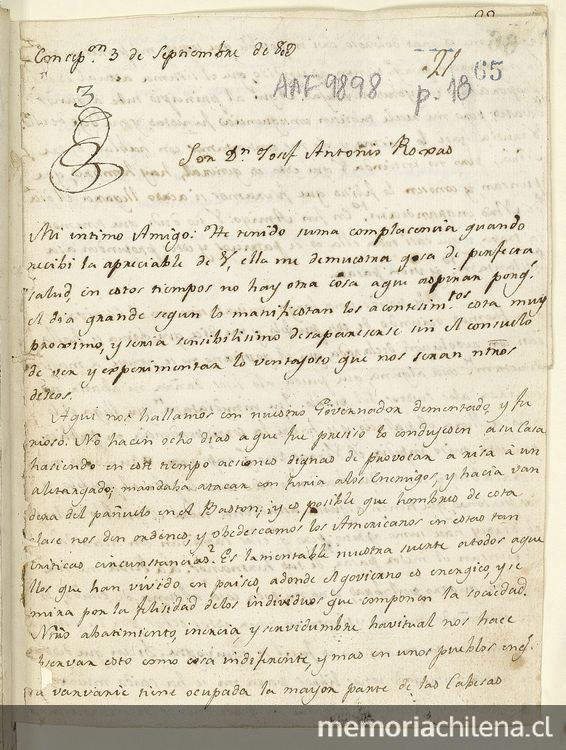 Concep.on 3 de Septiembre de 808
21
65
AAF 9898
p. 18
3
Sor Dn Josef Antonio Roxas
Mi intimo Amigo: He tenido suma complacencia quando
recibi la apreciable de V, ella me demuestra gosa de perfecta
salud, en estos tiempos no hay otra cosa aque aspirar porq.e
el dia grande segun lo manifiestan los acontesim.tos esta muy
proximo, y seria sensibilisimo desaparesense sin el consuelo
de ver y experimentar lo ventajoso que nos seran ntros
deseos.
Aqui nos hallamos con nuestro Governador dementado, y fu
rioso. No hacen ocho dias aque fue presiso lo condujesen a su Casa
hasiendo en este tiempo acciones dignas de provocar a risa à un
aletargado; mandaba atacar con furia alos Enemigos, y hacia van
dera del pañuelo en el Baston; ¿y es posible que hombres de esta
clase nos den ordenes, y obedescamos los Americanos en estas tan
criticas circunstancias? Es lamentable nuestra suerte atodos aque
llos que han vivido en paises, adonde el govierno es energico, y se
mira por la felisidad delos individuos que componen la sociedad.
Ntro abatimiento, inercia y servidumbre havitual nos hace
observar esto como cosa indiferente, y mas en unos pueblos enq.e
la varvarie tiene ocupada la mayor parte de las Cabesas
memoriachilena.cl